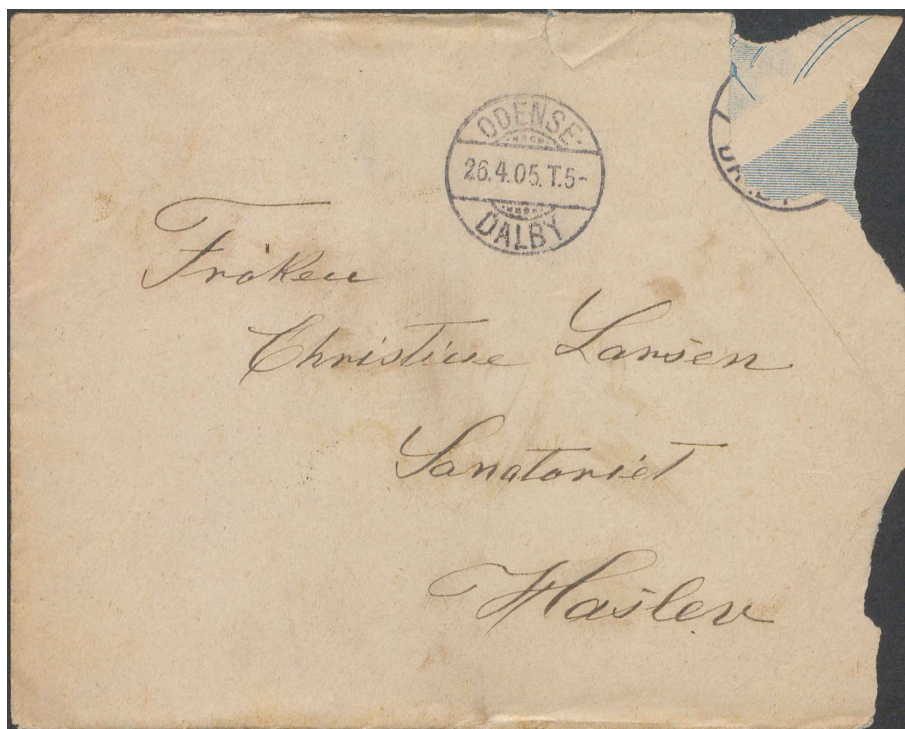 ODENSE·
26.4.05.T.5-
DALBY
Frøken
Christine Larsen
Sanatoriet
Haslev